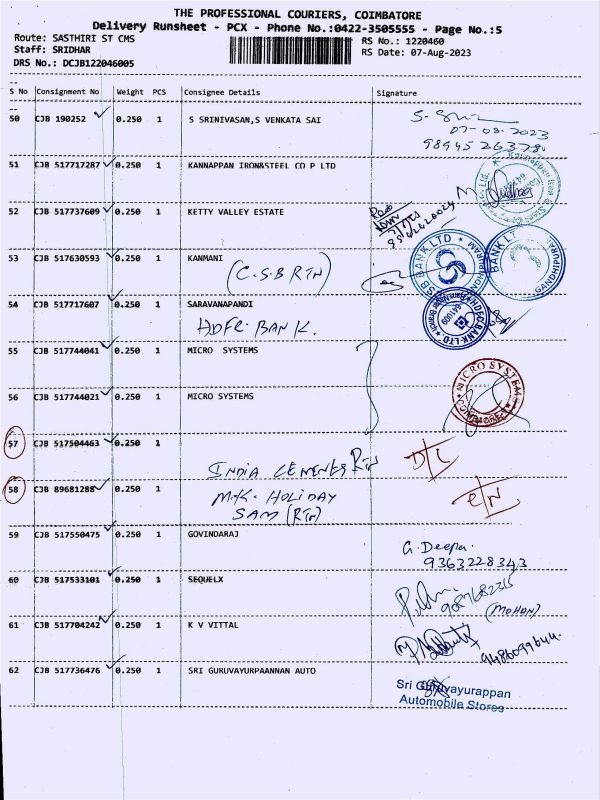 THE PROFESSIONAL COURIERS, COIMBATORE
Delivery Runsheet - PCX - Phone No.:0422-3505555 - Page No.:5
Route: SASTHIRI ST CMS
Staff: SRIDHAR
DRS No.: DCJB122046005
RS No.: 1220460
RS Date: 07-Aug-2023
S No Consignment No Weight PCS Consignee Details Signature
50 CJB 190252 0.250 1 S SRINIVASAN,S VENKATA SAI
07-08-2023
51 CJB 517717287 0.250 1 KANNAPPAN IRON&STEEL CO P LTD
52 CJB 517737609 0.250 1 KETTY VALLEY ESTATE
53 CJB 517630593 0.250 1 KANMANI
(C.S.B RTN)
54 CJB 517717607 0.250 1 SARAVANAPANDI
HDFC BANK.
55 CJB 517744041 0.250 1 MICRO SYSTEMS
56 CJB 517744021 0.250 1 MICRO SYSTEMS
MICRO SYSTEMS
57 CJB 517504463 0.250 1
INDIA CEMENTS RTN
D/L
58 CJB 89681288 0.250 1
M.K. HOLIDAY
SAM (RTN)
59 CJB 517550475 0.250 1 GOVINDARAJ
G. Deepa.
9363228343
60 CJB 517533101 0.250 1 SEQUELX
(MOHAN)
61 CJB 517704242 0.250 1 K V VITTAL
9486099644.
62 CJB 517736476 0.250 1 SRI GURUVAYURPAANNAN AUTO
Sri Guruvayurappan
Automobile Stores